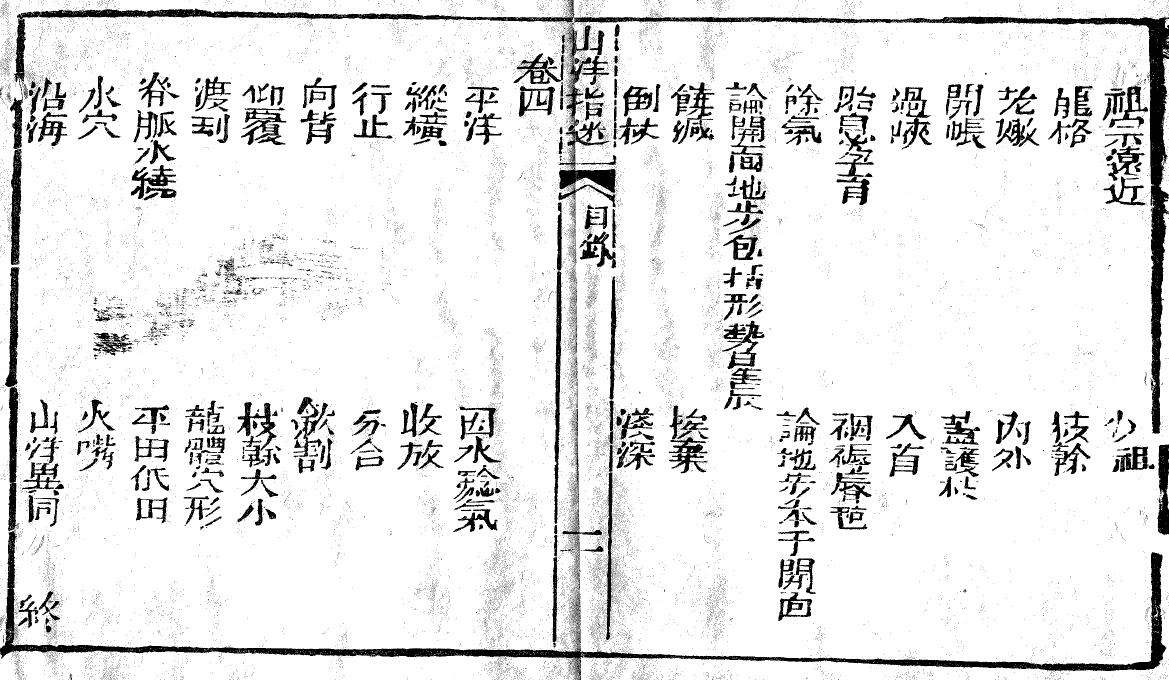 祖宗遠近　少祖
龍格　枝幹
老嫩　內外
開帳　蓋護
過峽　入首
胎息孕育　裀褥唇氊
餘氣　論地步本于開面
論開面地步包括形勢星辰
饒減　挨棄
倒杖　淺深
山洋指迷　目錄　二
卷四
平洋　因水驗氣
縱橫　收放
行止　分合
向背　斂割
仰覆　枝幹大小
渡到　龍體穴形
脊脈水繞　平田低田
水穴　火嘴
沿海　山洋異同　終